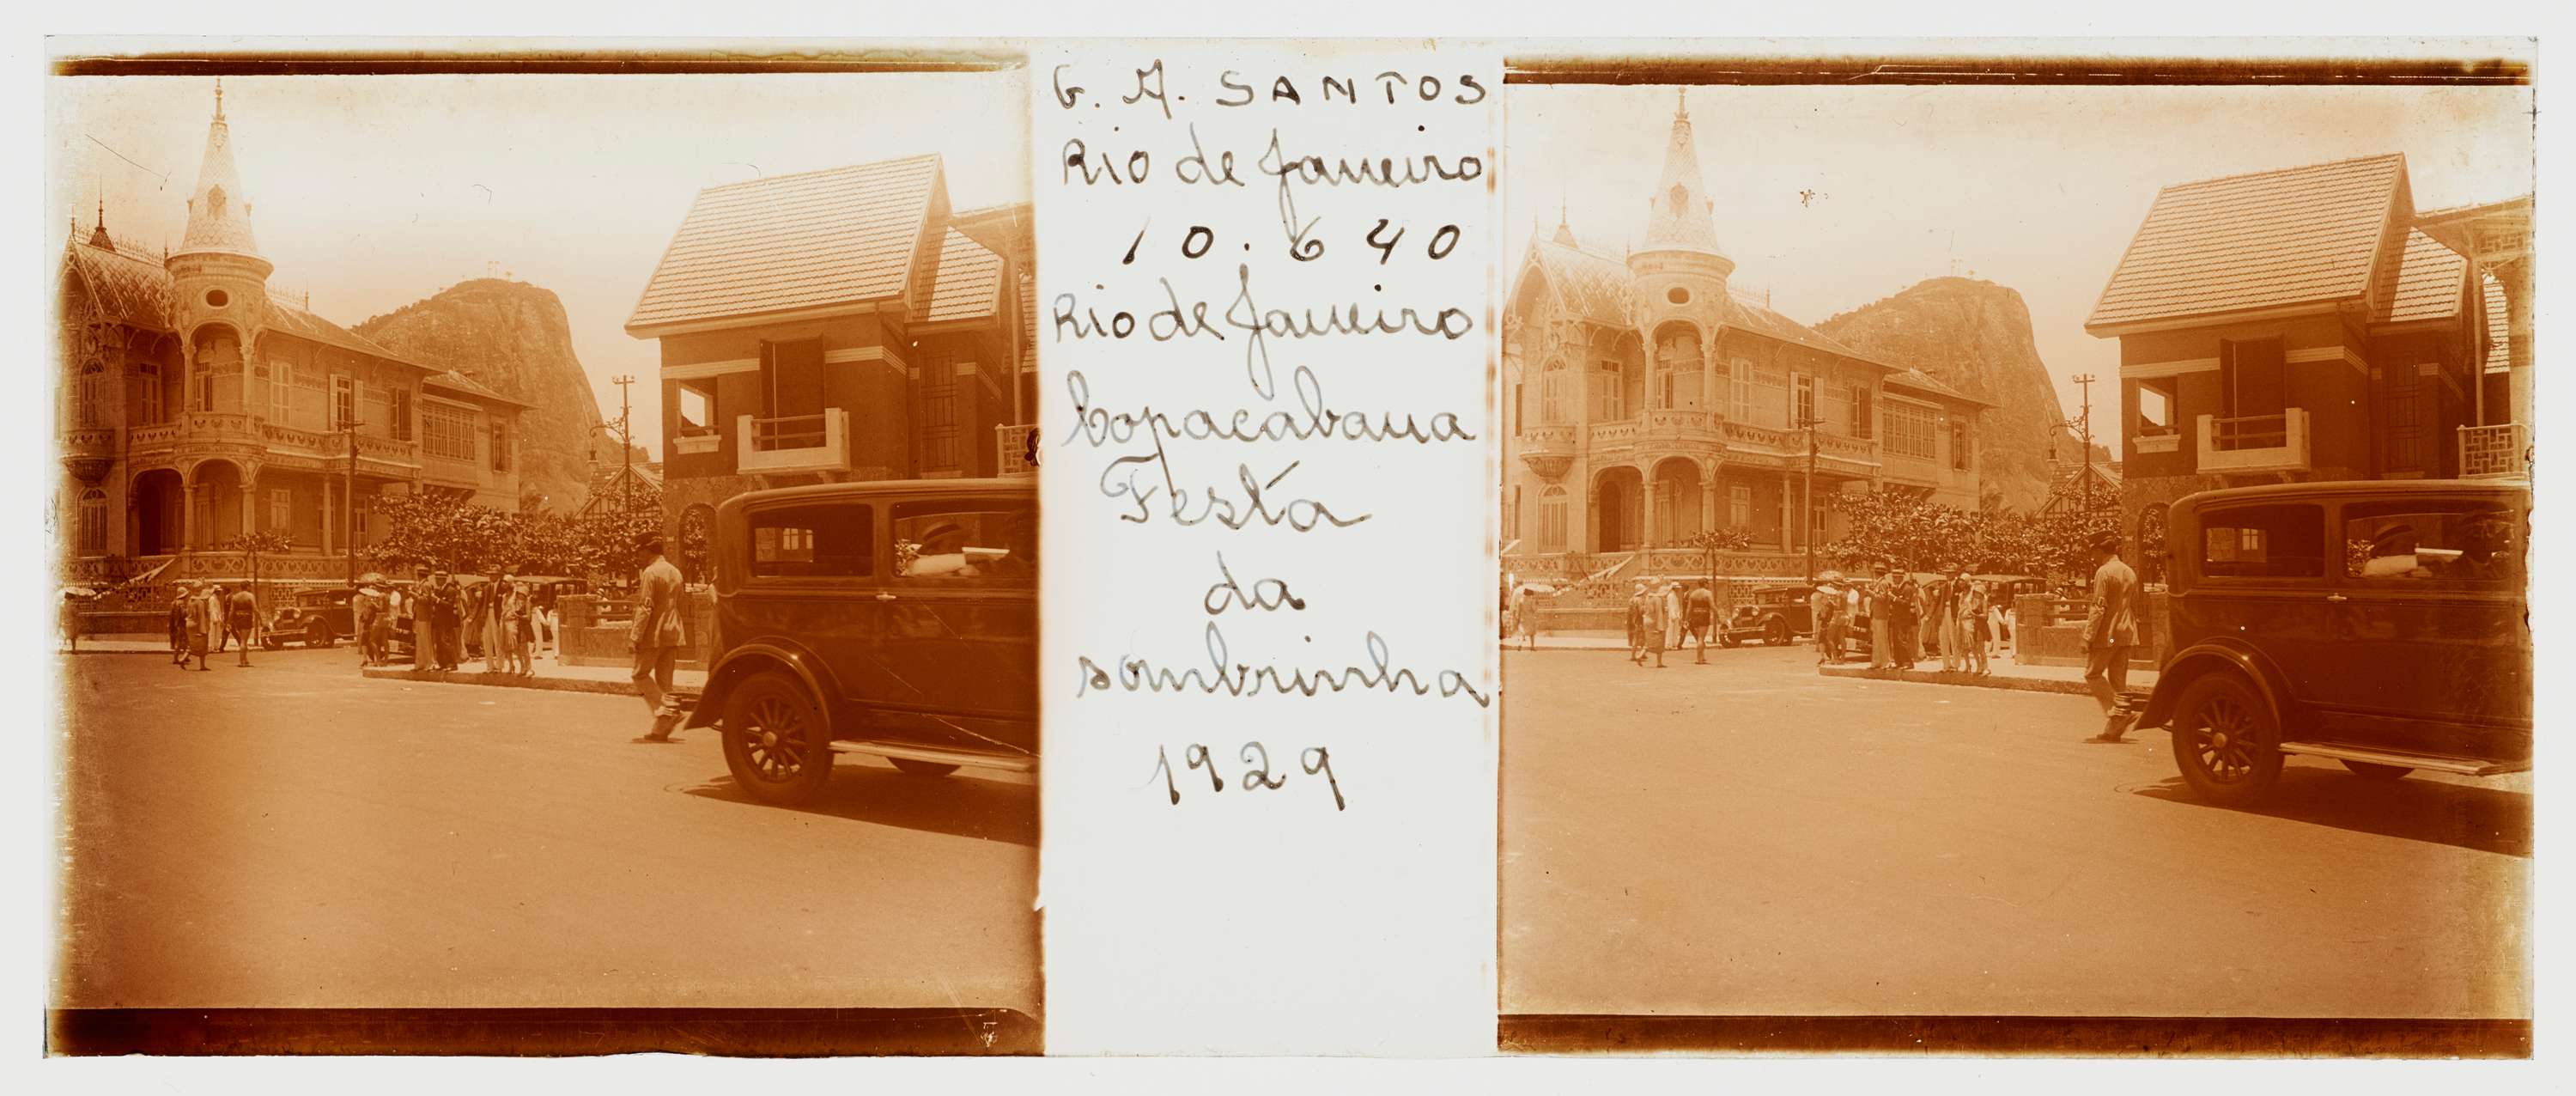 G. A. SANTOS
Rio de Janeiro
10.640
Rio de Janeiro
Copacabana
Festa
da
sombrinha
1929